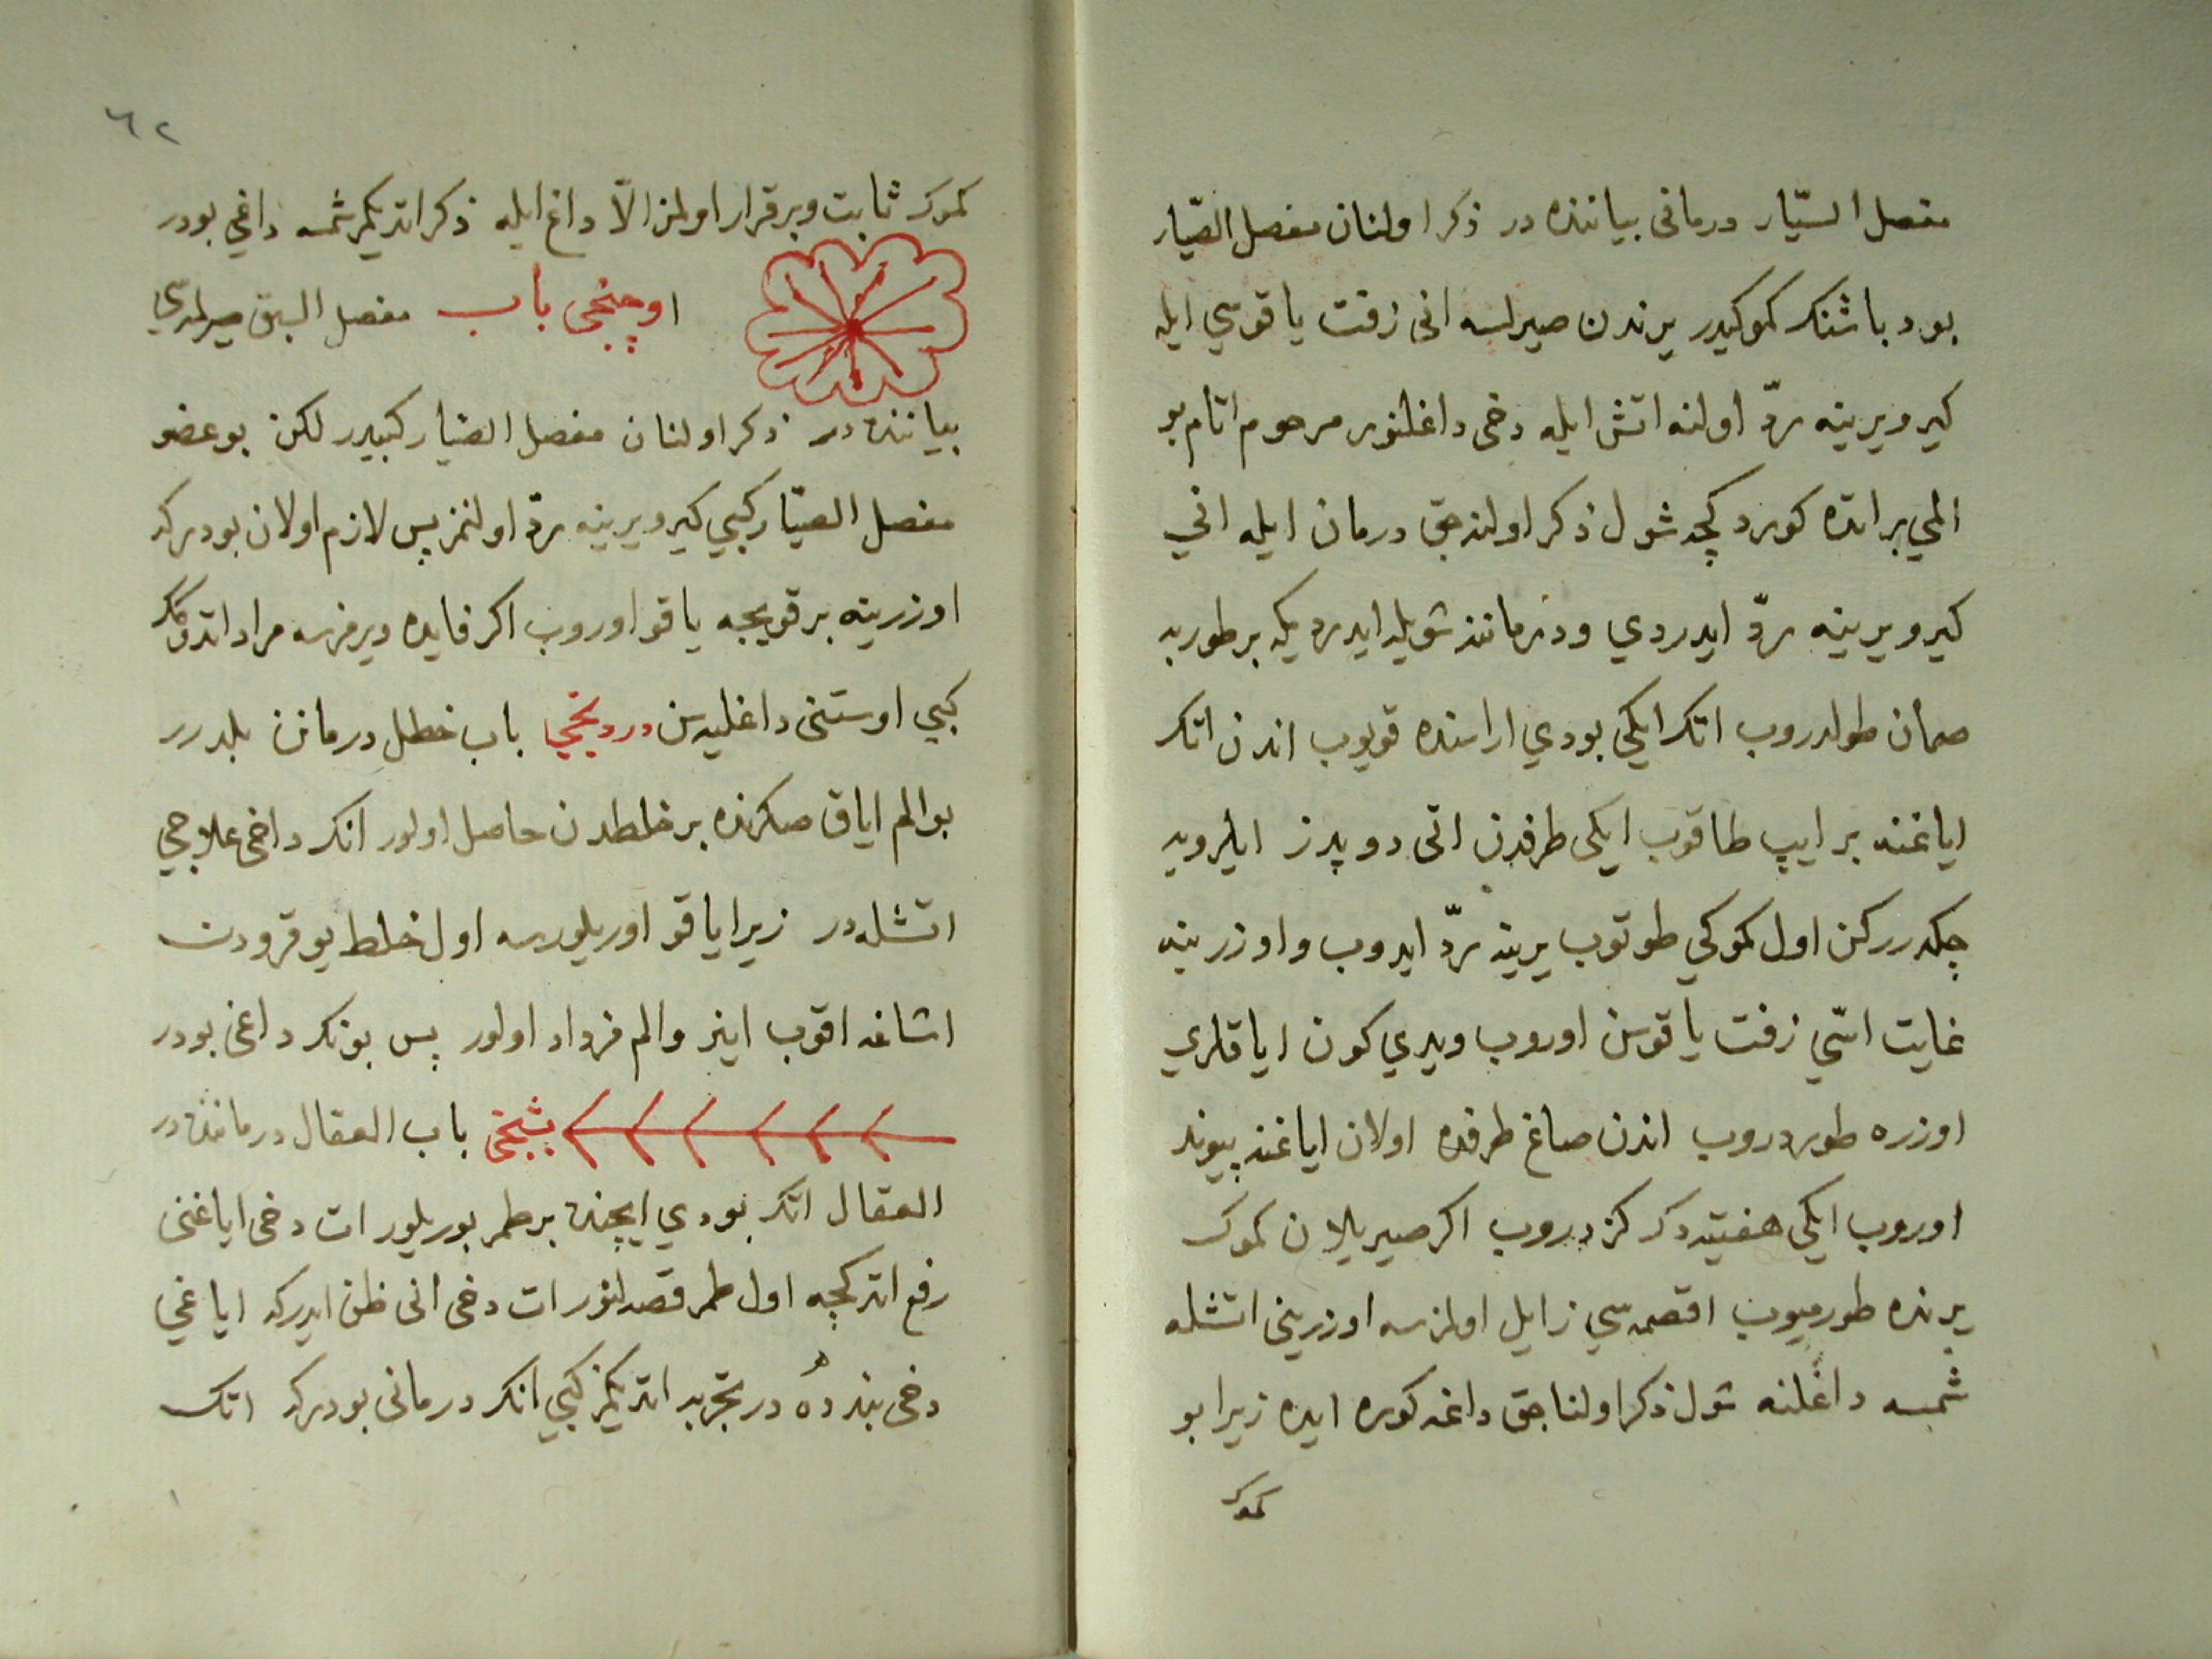 مفصل السيّار درمانی بیاننده در ذكر اولنان مفصل الصيّار
بود باشنك كموكیدر یرندن صیرلسه انی زفت یاقوسي ایله
كیرو یرینه ردّ اولنه اتش ایله دخی داغلنور مرحوم اتام بو
المي بر اتده كوردكچه شول ذكر اولنه جق درمان ایله اني
كیرو یرینه ردّ ایدردي ودرماننه شویله ایدردیكه بر طوربه
صمان طولدروب اتك ایكي بودي اراسنده قویوب اندن اتك
ایاغنه بر ایپ طاقوب ایكی طرفدن اتی دوپدز ایلرویه
چكدرركن اول كموكي طوتوب یرینه ردّ ایدوب واوزرینه
غایت اسّي زفت یاقوسن اوروب ویدي كون ایاقلري
اوزره طوردروب اندن صاغ طرفده اولان ایاغنه پیوند
اوروب ایكی هفتیه دك كزدروب اكر صیریلان كموك
یرنده طورمیوب اقصمه سي زایل اولمزسه اوزرینی اتشله
شمسه داغلنه شول ذكر اولناجق داغه كوره ایده زیرا بو
كموك
٦٢
كموك ثابت وبرقرار اولمز الّا داغ ایله ذكر اتدیكمز شمسه داغي بودر
اوچنجی باب مفصل السبق صیرلمه سي
بیاننده در ذكر اولنان مفصل الصیّار كبیدر لكن بو عضو
مفصل الصیّار كبي كیرو یرینه ردّ اولنمز پس لازم اولان بودركه
اوزرینه بر قویجه یاقو اوروب اكر فایده ویرمزسه مراد اتدوكك
كبي اوستنی داغلیه سن دردنجي باب خطل درمانن بلدرر
بو الم ایاق صكرنده بر خلطدن حاصل اولور انك داخی علاجي
اتشله در زیرا یاقو اوریلورسه اول خلط یوقرودن
اشاغه اقوب اینر والم فزداد اولور پس بونك داغی بودر
بشنجی باب العقال درماننده در
العقال اتك بودي ایچنده بر طمر بوریلور ات دخی ایاغنی
رفع اتدكچه اول طمر قصه لنور ات دخی انی ظن ایدركه ایاغي
دخی بنده در تجربه اتدیكمز كبي انك درمانی بودركه اتك